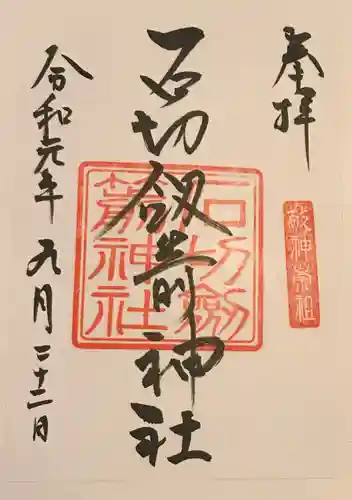 奉拝
敬神崇祖
石切剱箭神社
石切劔
箭神社
令和元年九月二十二日